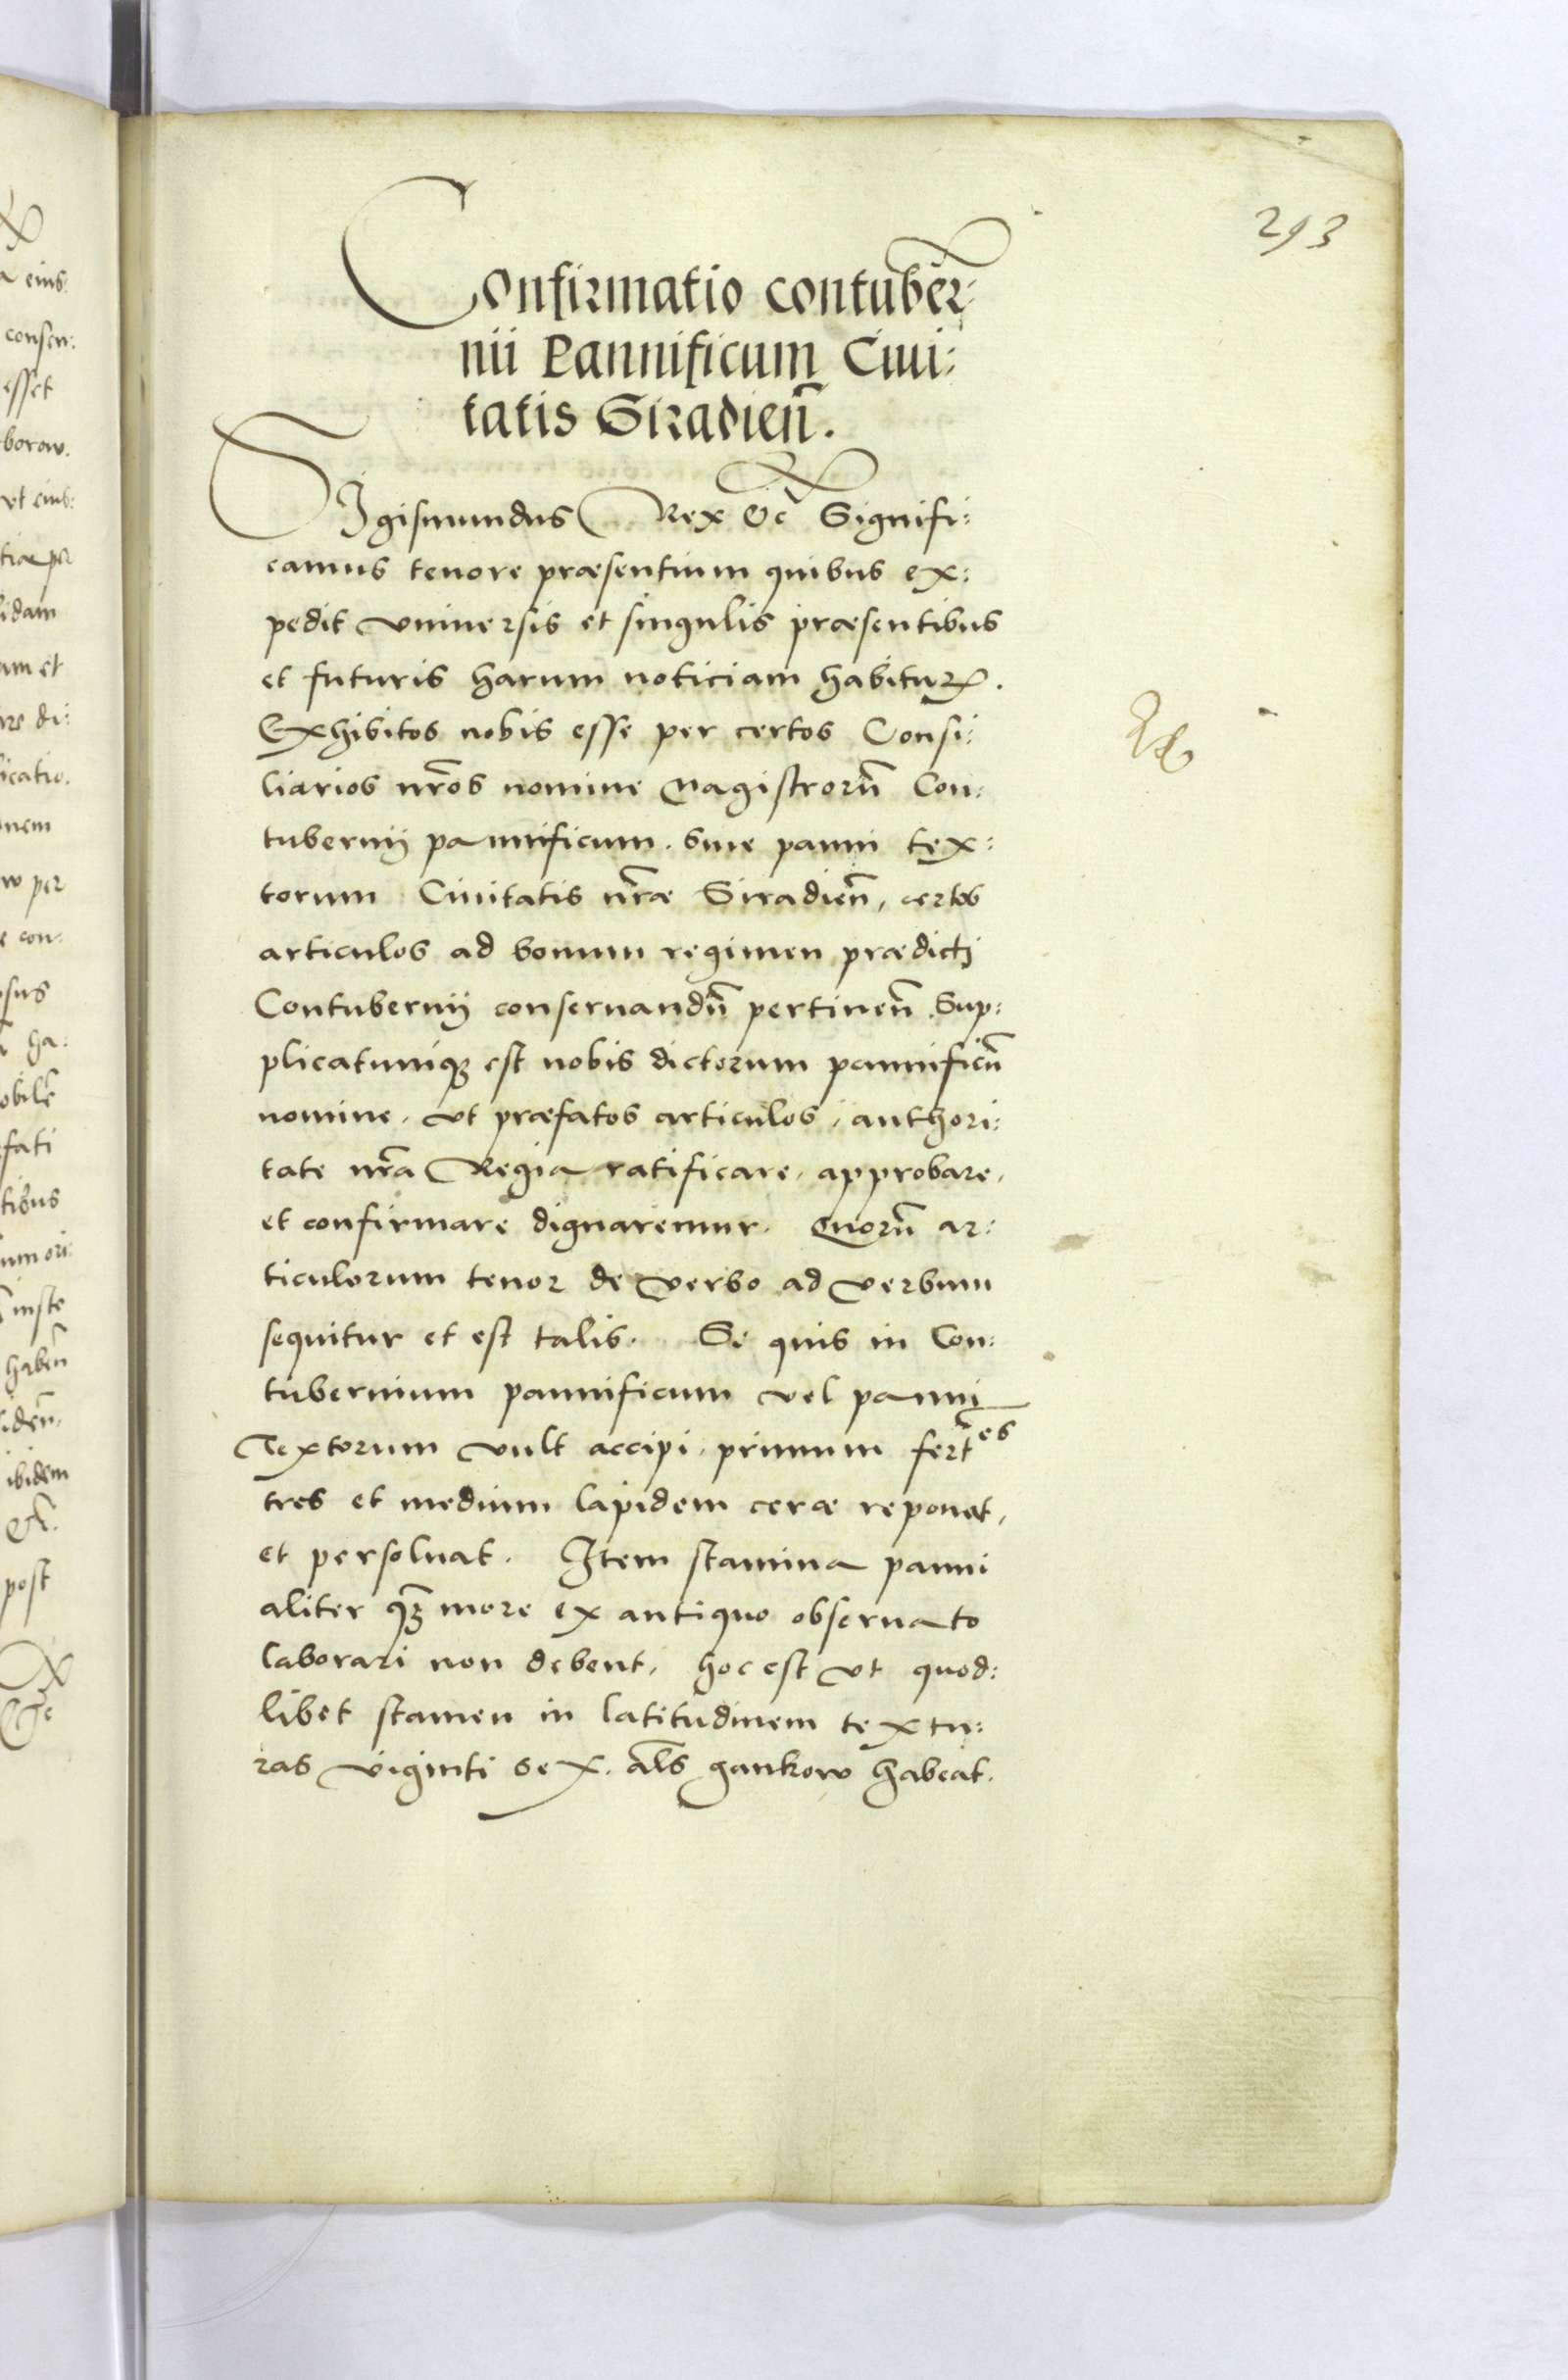 293
Confirmatio contuber:
nii Pannificum Ciui:
tatis Siradien̄.
SIgismundus Rex &c̄ Signifi:
camus tenore præsentium quibus ex:
pedit vniuersis et singulis præsentibus
et futuris harum noticiam habituꝝ.
Exhibitos nobis esse per certos Consi:
liarios nr̄os nomine Magistrorū Con:
tubernij pannificum. siue panni tex:
torum Ciuitatis nr̄æ Siradien̄, certos
articulos ad bonum regimen prædicti
Contubernij conseruandū pertinen̄. Sup:
plicatumqꝫ est nobis dictorum pannificū
nomine, vt præfatos articulos, authori:
tate nr̄a Regia ratificare, approbare,
et confirmare dignaremur. Quorū ar:
ticulorum tenor de verbo ad verbum
sequitur et est talis. Si quis in Con:
tubernium pannificum vel panni
Textorum vult accipi, primum fert̄es
tres et medium lapidem ceræ reponat,
et persoluat. Item stamina panni
aliter qꝫ̄ more ex antiquo obseruato
laborari non debent, hoc est vt quod:
libet stamen in latitudinem textu:
ras viginti sex. al̄s gankow habeat.